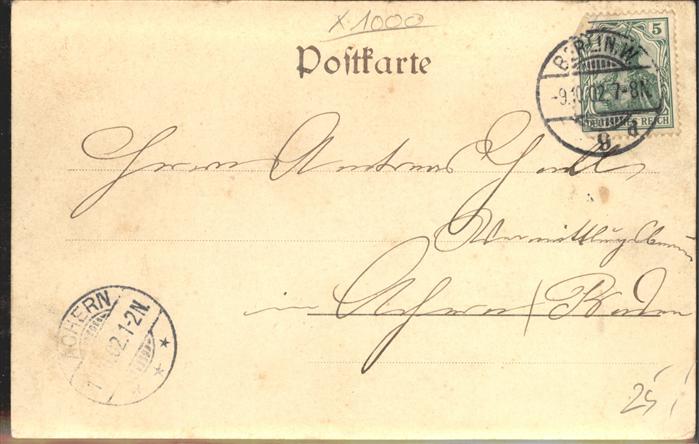 x 1000
Postkarte
5
DEUTSCHES REICH
BERLIN.W.
-9.10.02.7-8N.
9 d
Herrn Andreas
Vermittlungsbureau
in Achern / Baden
ACHERN
02.1-2N.
25